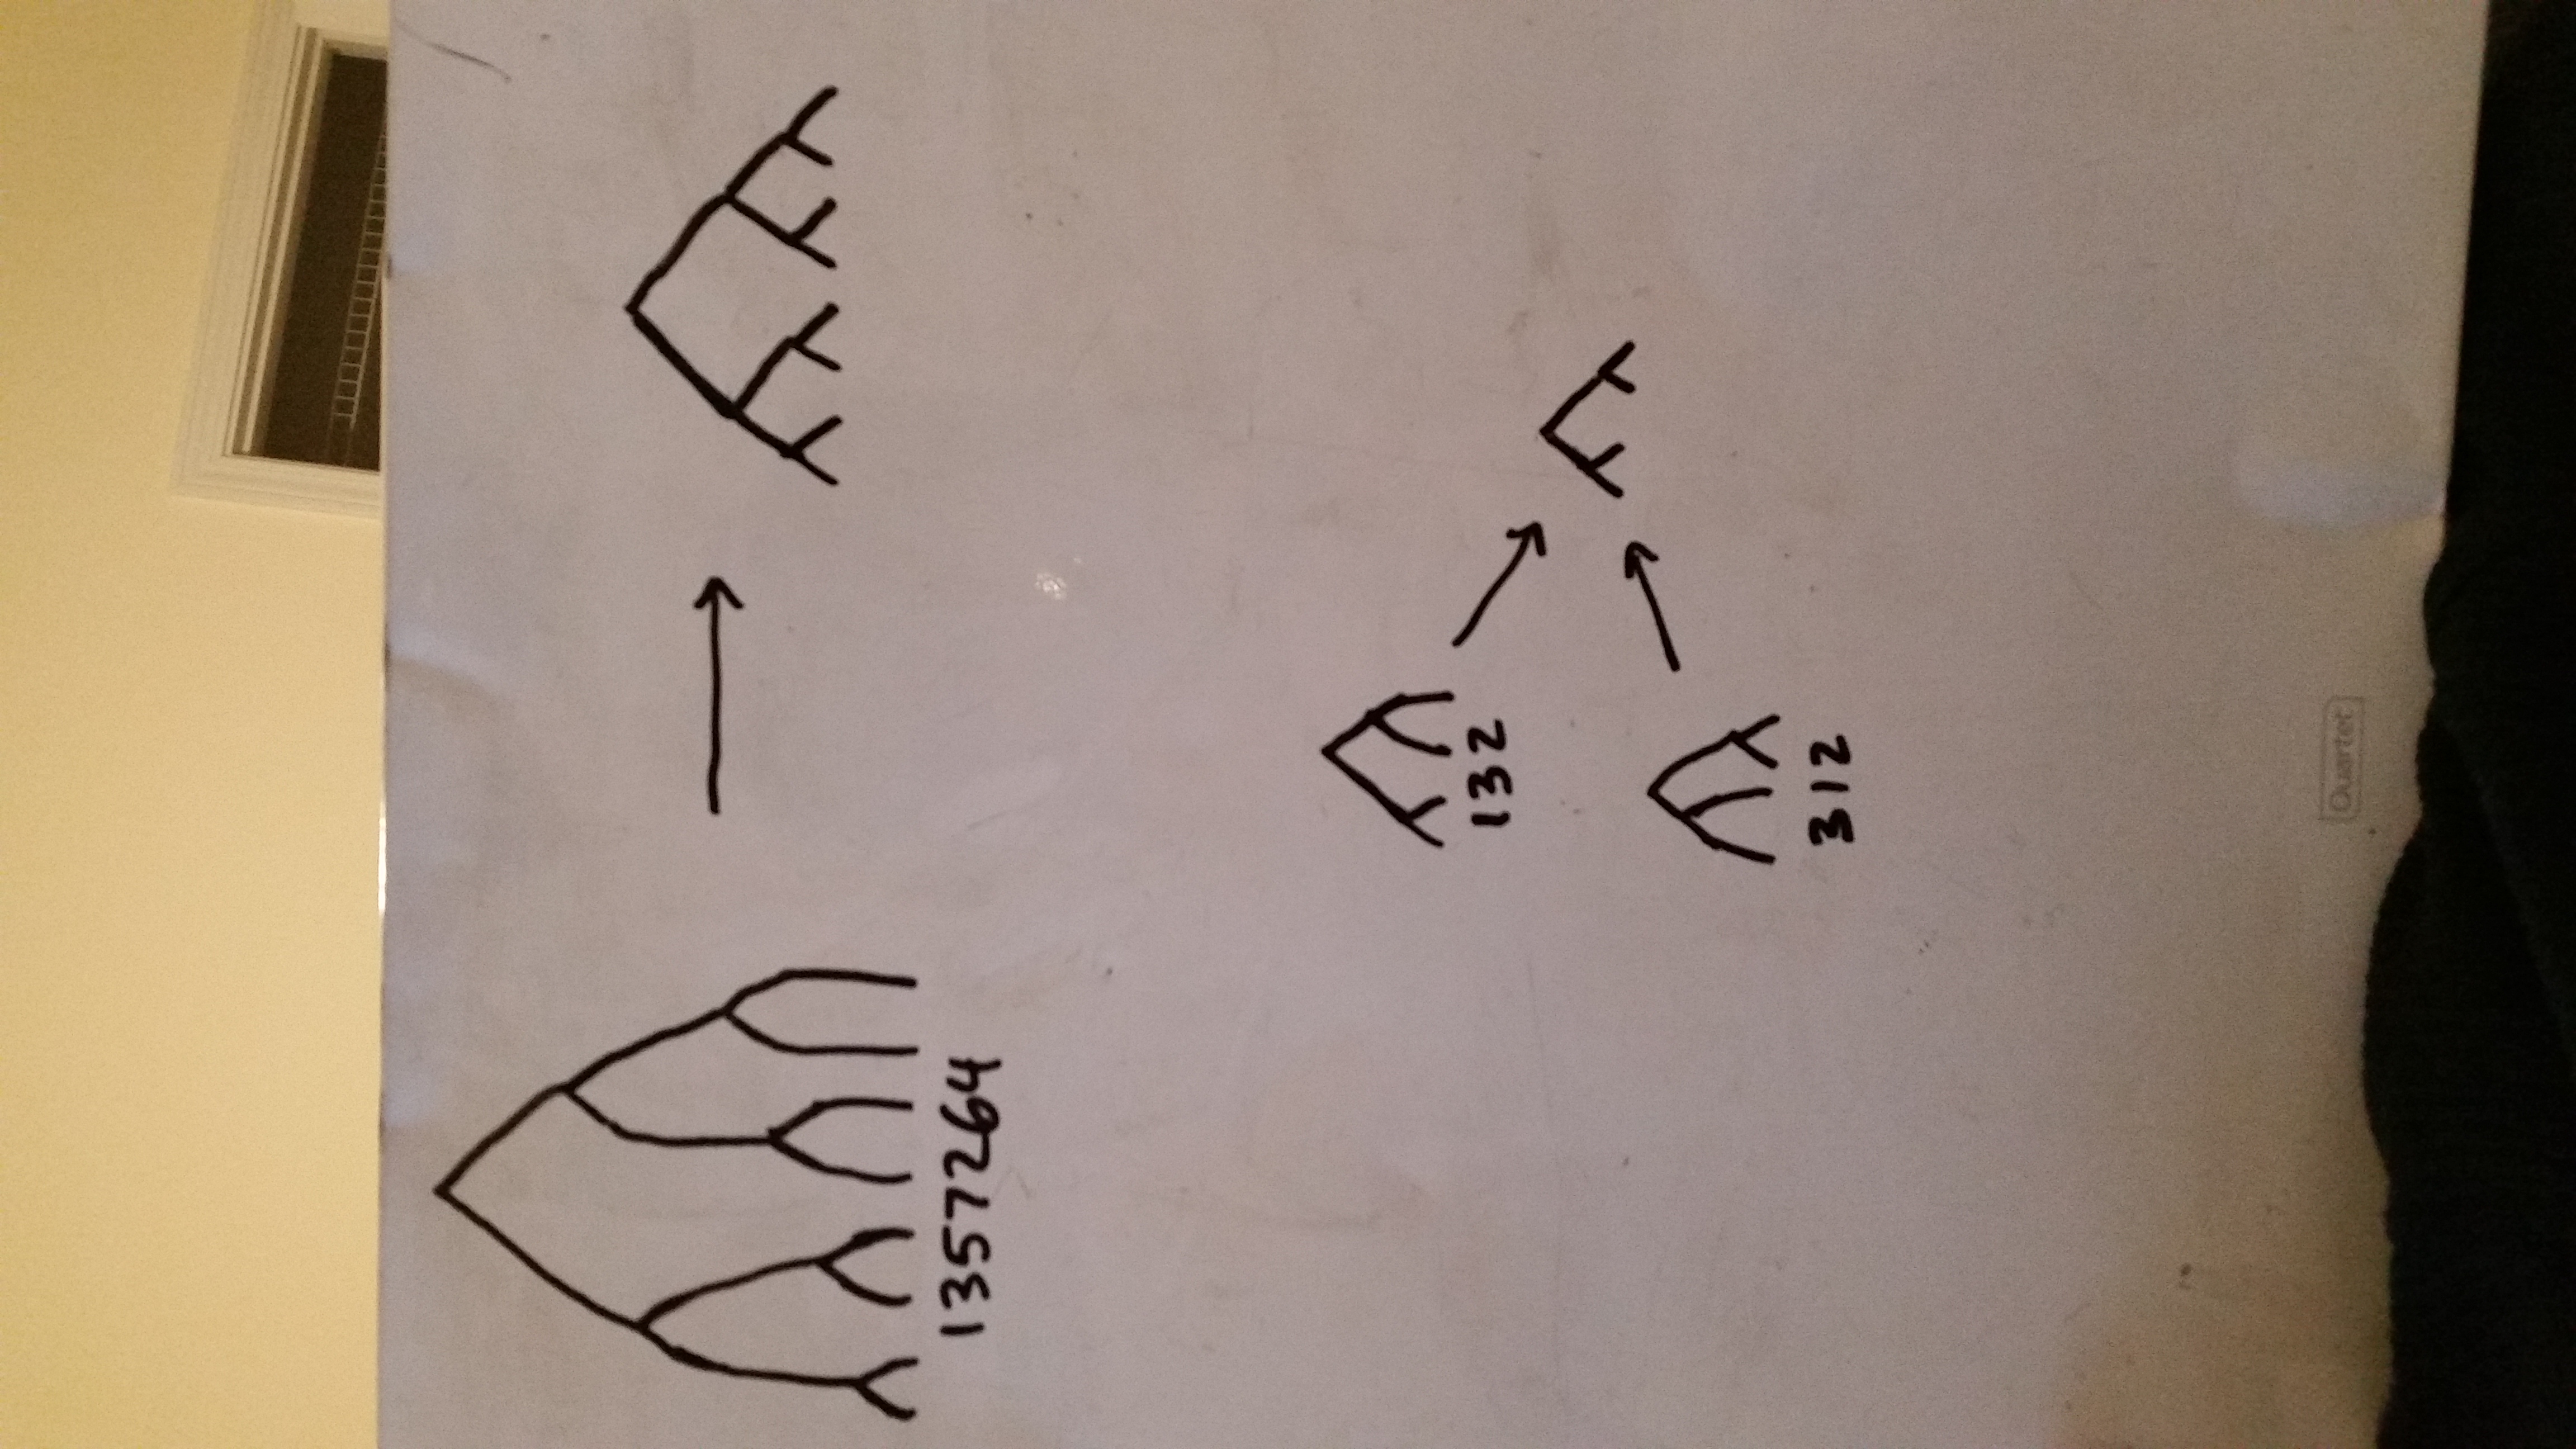 1357264
132
312
Quartet